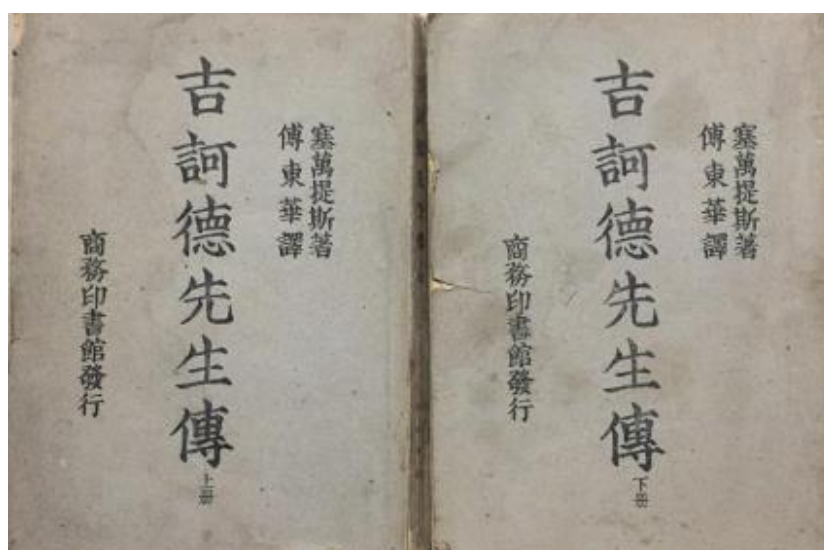 塞萬提斯著
傅東華譯
吉訶德先生傳
上册
商務印書館發行
塞萬提斯著
傅東華譯
吉訶德先生傳
下册
商務印書館發行